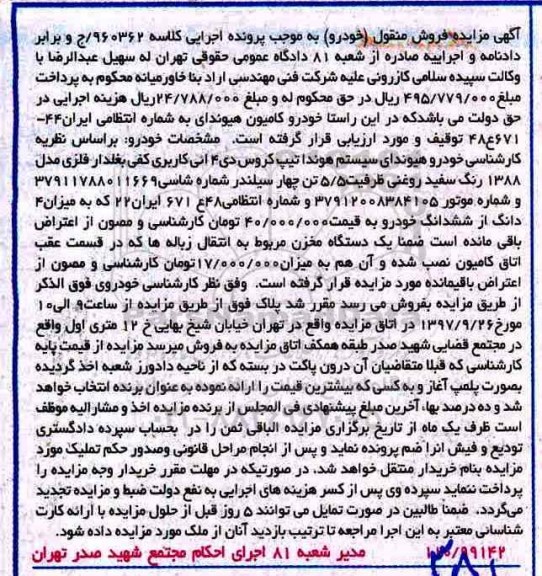 آگهی مزایده فروش منقول (خودرو) به موجب پرونده اجرایی کلاسه ۹۶۰۳۶۲/ج و برابر
دادنامه و اجراییه صادره از شعبه ۸۱ دادگاه عمومی حقوقی تهران له سهیل عبدالرضا با
وکالت سپیده سلامی کازرونی علیه شرکت فنی مهندسی اراد بنا خاورمیانه محکوم به پرداخت
مبلغ ۴۹۵/۷۷۹/۰۰۰ ریال در حق محکوم له و مبلغ ۲۴/۷۸۸/۰۰۰ریال هزینه اجرایی در
حق دولت می باشدکه در این راستا خودرو کامیون هیوندای به شماره انتظامی ایران۴۴-
۶۷۱ع۴۸ توقیف و مورد ارزیابی قرار گرفته است. مشخصات خودرو: براساس نظریه
کارشناسی خودرو هیوندای سیستم هوندا تیپ کروس دی۴ ائی کاربری کفی بغلدار فلزی مدل
۱۳۸۸ رنگ سفید روغنی ظرفیت۵/۵ تن چهار سیلندر شماره شاسی۳۷۹۱۱۷۸۸۰۱۱۶۶۹
و شماره موتور ۳۷۹۱۲۰۰۸۳۸۴۱۰۵ و شماره انتظامی۴۸ع ۶۷۱ ایران۲۲ که به میزان۴
دانگ از ششدانگ خودرو به قیمت۴۰/۰۰۰/۰۰۰ تومان کارشناسی و مصون از اعتراض
باقی مانده است ضمنا یک دستگاه مخزن مربوط به انتقال زباله ها که در قسمت عقب
اتاق کامیون نصب شده و آن هم به میزان۱۷/۰۰۰/۰۰۰تومان کارشناسی و مصون از
اعتراض باقیمانده مورد مزایده قرار گرفته است. وفق نظر کارشناسی خودروی فوق الذکر
از طریق مزایده بفروش می رسد مقرر شد پلاک فوق از طریق مزایده از ساعت۹ الی۱۰
مورخ۱۳۹۷/۹/۲۶ در اتاق مزایده واقع در تهران خیابان شیخ بهایی خ ۱۲ متری اول واقع
در مجتمع قضایی شهید صدر طبقه همکف اتاق مزایده به فروش میرسد مزایده از قیمت پایه
کارشناسی که قبلا متقاضیان آن درون پاکت در بسته که از ناحیه دادورز شعبه اخذ گردیده
بصورت پلمپ آغاز و به کسی که بیشترین قیمت را ارائه نموده به عنوان برنده انتخاب خواهد
شد و ده درصد بها، آخرین مبلغ پیشنهادی فی المجلس از برنده مزایده اخذ و مشارالیه موظف
است ظرف یک ماه از تاریخ برگزاری مزایده الباقی ثمن را در بحساب سپرده دادگستری
تودیع و فیش انرا ضم پرونده نماید و پس از انجام مراحل قانونی وصدور حکم تملیک مورد
مزایده بنام خریدار منتقل خواهد شد. در صورتیکه در مهلت مقرر خریدار وجه مزایده را
پرداخت ننماید سپرده وی پس از کسر هزینه های اجرایی به نفع دولت ضبط و مزایده تجدید
می‌گردد. ضمنا طالبین در صورت تمایل می توانند ۵ روز قبل از حلول مزایده با ارائه کارت
شناسائی معتبر به این اجرا مراجعه تا ترتیب بازدید آنان از ملک مورد مزایده داده شود.
مدیر شعبه ۸۱ اجرای احکام مجتمع شهید صدر تهران